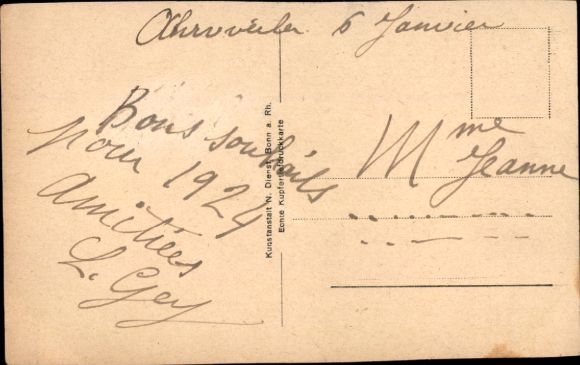 Ahrweiler 6 Janvier
Bons souhaits
pour 1924
Amitiées
L. Gey
Kunstanstalt N. Dienst, Bonn a. Rh.
Echte Kupfertiefdruckkarte
Mme
Jeanne